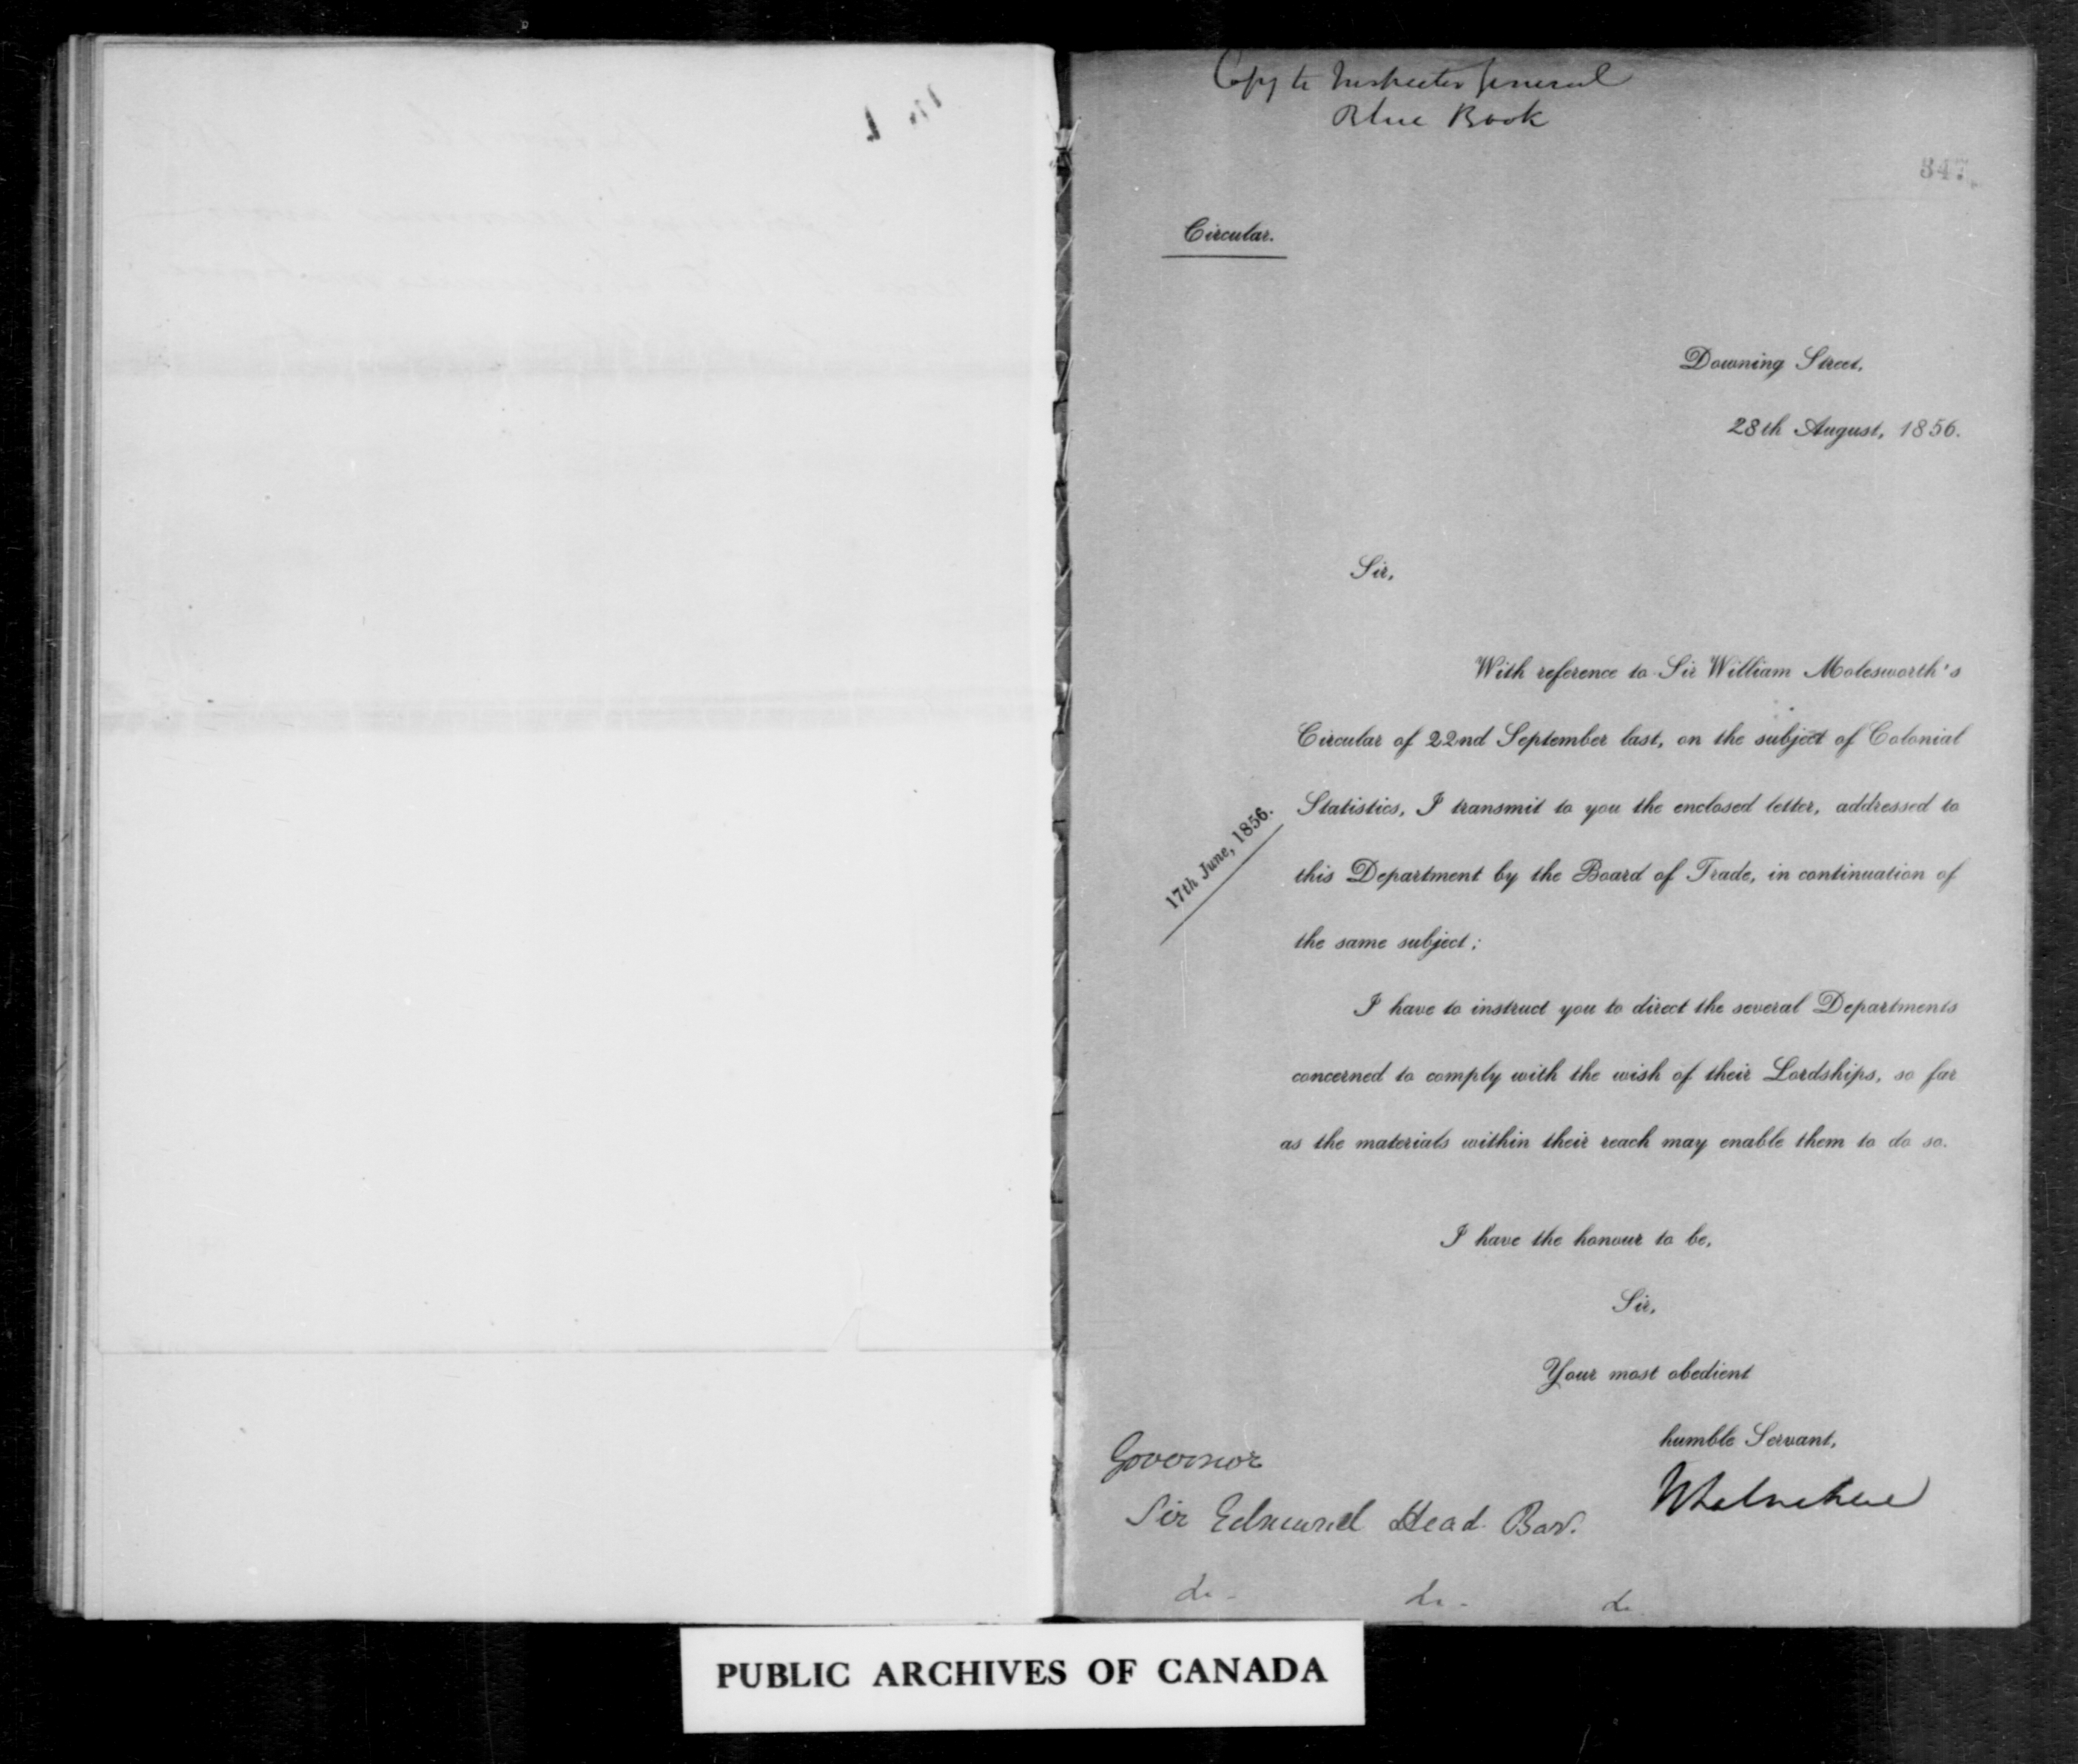 Copy to Inspector General
Blue Book
347
Circular.
Downing Street,
28th August, 1856.
Sir,
With reference to Sir William Molesworth's
Circular of 22nd September last, on the subject of Colonial
Statistics, I transmit to you the enclosed letter, addressed to
17th June, 1856.
this Department by the Board of Trade, in continuation of
the same subject;
I have to instruct you to direct the several Departments
concerned to comply with the wish of their Lordships, so far
as the materials within their reach may enable them to do so.
I have the honour to be,
Sir,
Your most obedient
humble Servant,
Governor
Sir Edmund Head Bart.
PUBLIC ARCHIVES OF CANADA